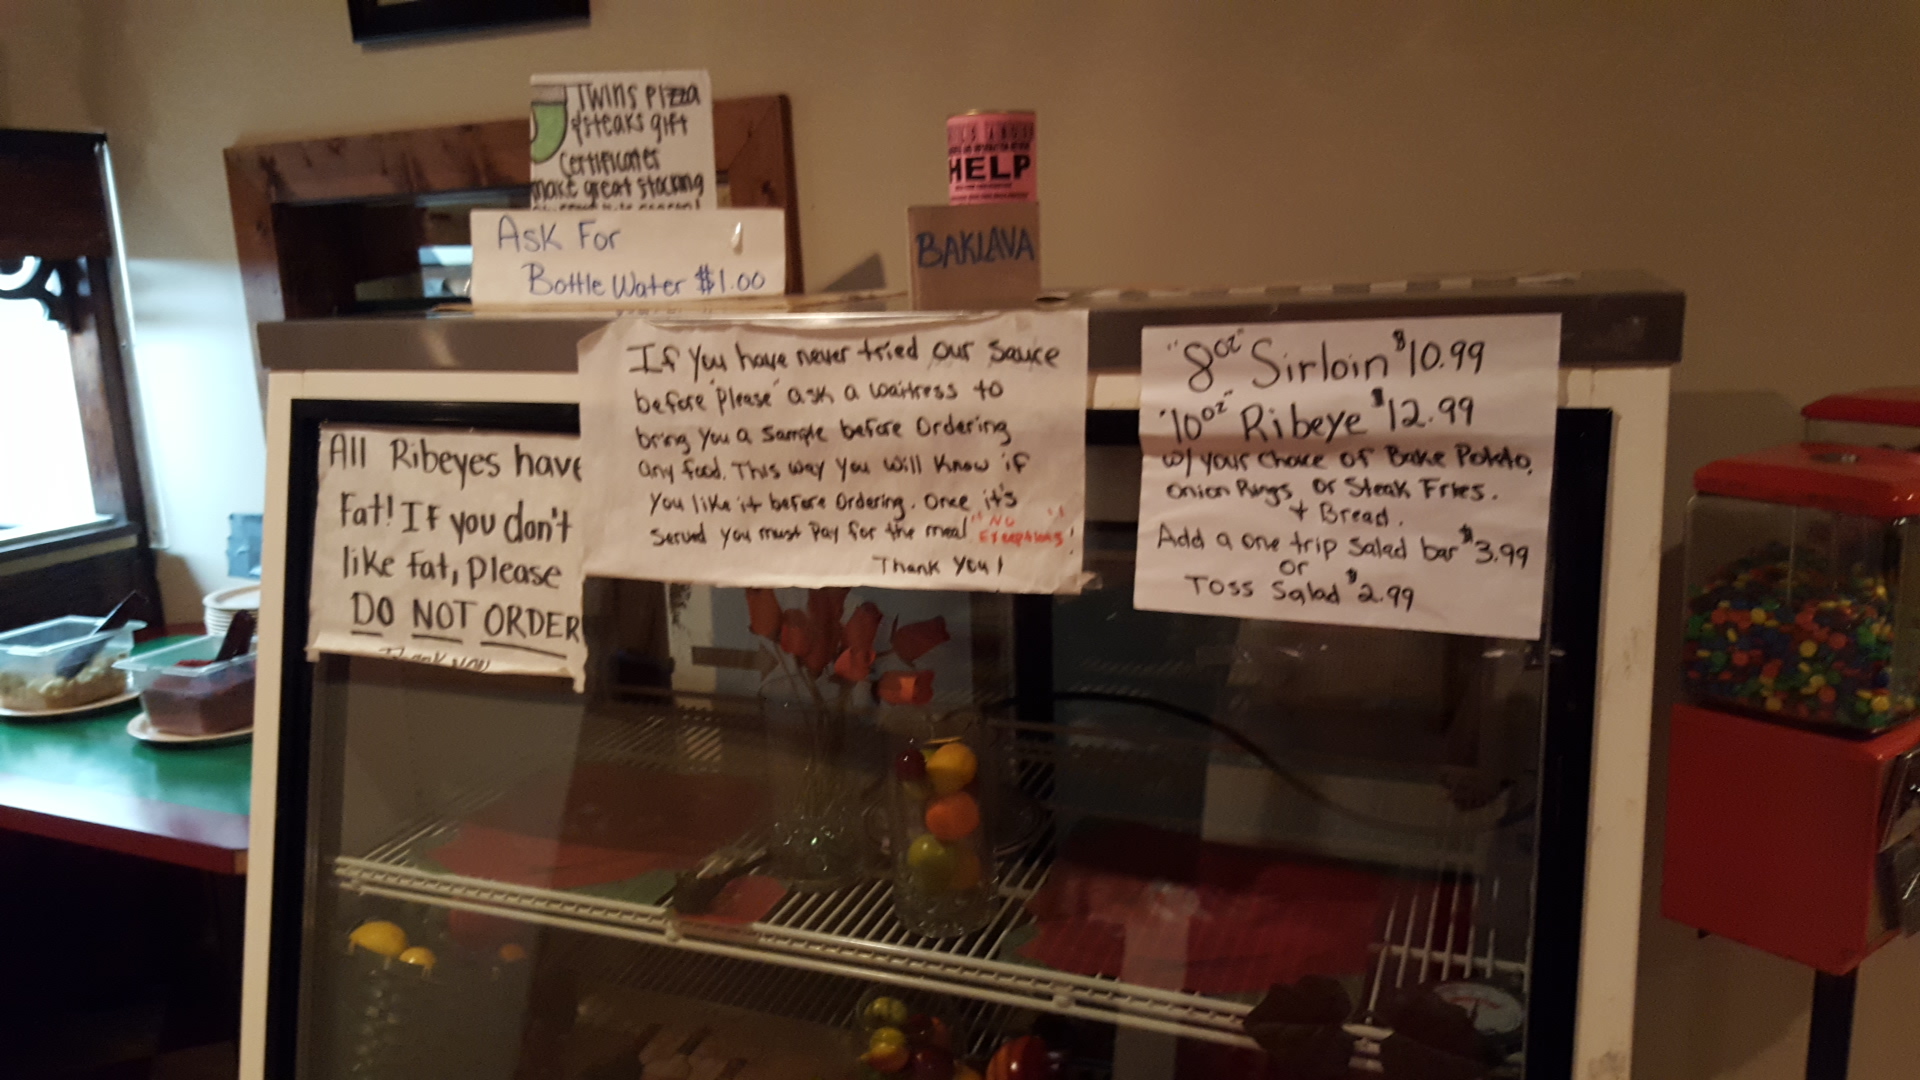 Twins Pizza
& steaks gift
Certificates
make great stocking
Ask For
Bottle Water $1.00
HELP
BAKLAVA
All Ribeyes have
Fat! If you don't
like fat, please
DO NOT ORDER
Thank you
If you have never tried our sauce
before "please" ask a waitress to
bring you a sample before Ordering
any food. This way you will know if
you like it before Ordering. Once it's
served you must pay for the meal "No
Exceptions"!
Thank you!
"8oz" Sirloin $10.99
"10oz" Ribeye $12.99
w/ your choice of Bake Potato,
Onion Rings, or Steak Fries.
+ Bread.
Add a one trip salad bar $3.99
or
Toss Salad $2.99